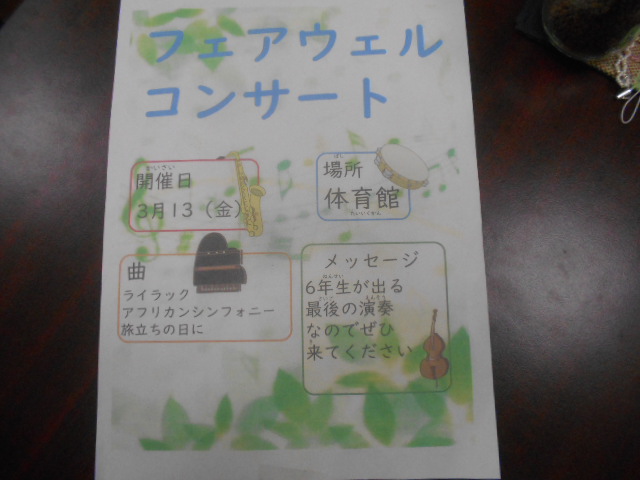 フェアウェル
コンサート
かいさい
開催日
3月13（金）
ばしょ
場所
体育館
たいいくかん
曲
ライラック
アフリカンシンフォニー
旅立ちの日に
メッセージ
6年生が出る
最後の演奏
なのでぜひ
来てください